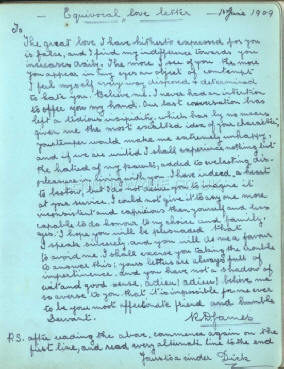 Equivocal love letter — 10 June 1909
To
The great love I have hitherto expressed for you
is false, and I find my indifference towards you
increases daily. The more I see of you the more
you appear in my eyes an object of contempt
I feel myself every way disposed & determined
to hate you. Believe me I never had an intention
to offer you my hand. Our last conversation has
left a tedious insipidity, which has by no means
given me the most exalted idea of your character,
your temper would make me extremely unhappy.
and if we are united I shall experience nothing but
the hatred of my parents, added to everlasting dis-
pleasure in living with you. I have indeed, a heart
to bestow, but I do not desire you to imagine it
at your service. I could not give it to any one more
inconsistent and capricious than yourself and less
capable to do honour to my choice and family.
Yes, I hope you will be persuaded that
I speak sincerely, and you will do me a favour
to avoid me. I shall excuse you taking the trouble
to answer this; your letters are always full of
impertinence. and you have not a shadow of
wit and good sense, adieu! adieu! believe me
so averse to you, that it is impossible for me ever
to be your most affectionate friend and humble
Servant.
R.D. James
P.S. after reading the above, commence again on the
first line, and read every alternate line to the end